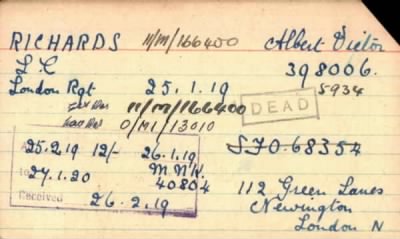 RICHARDS 11/M/166400 Albert Victor
L C 398006.
London Rgt 25.1.19 5934
11/M/166400 DEAD
0/M1/13010
25.2.19 12/- 26.1.19 SJO.68354
to 27.1.20 M.N.N. 40804 112 Green Lanes
Received 26.2.19 Newington
London N